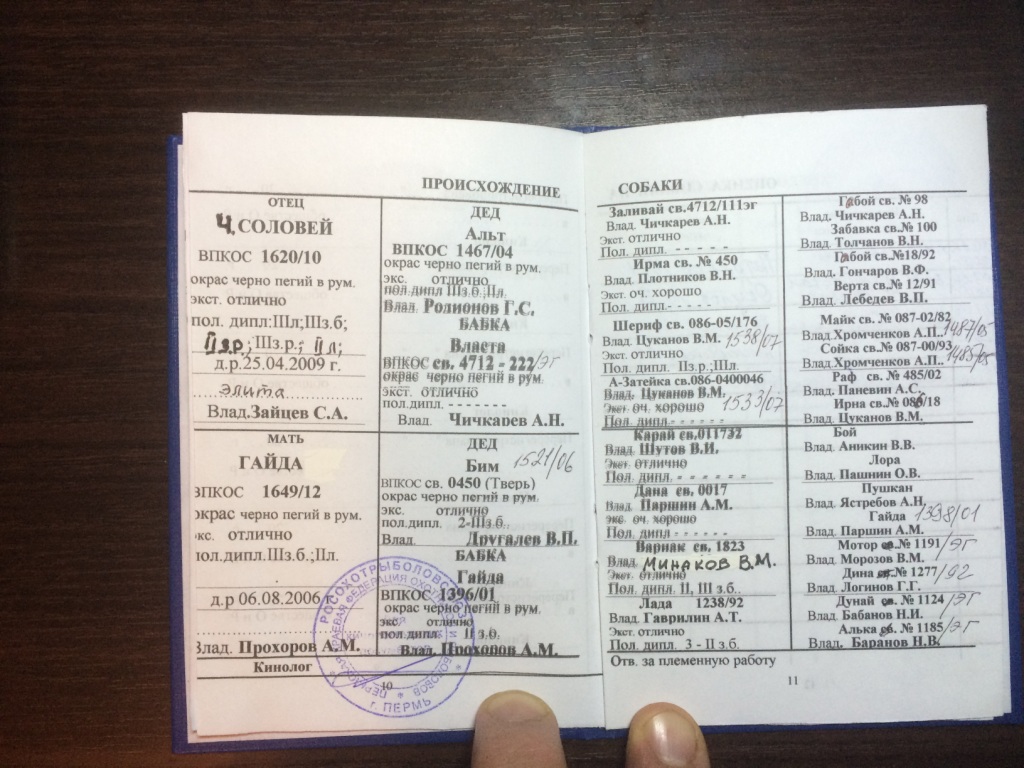 ПРОИСХОЖДЕНИЕ
ОТЕЦ
Ч. СОЛОВЕЙ
ВПКОС 1620/10
окрас черно пегий в рум.
экст. отлично
пол. дипл:IIIл;IIIз.б;
IIз.р.;IIIз.р.; II л;
д.р.25.04.2009 г.
элита
Влад.Зайцев С.А.
МАТЬ
ГАЙДА
ВПКОС 1649/12
окрас черно пегий в рум.
экс. отлично
пол.дипл.IIIз.б.;IIл.
д.р 06.08.2006
Влад. Прохоров А.М.
Кинолог
ДЕД
Альт
ВПКОС 1467/04
окрас черно пегий в рум.
экс. отлично
пол.дипл IIIз.б.;IIл.
Влад. Родионов Г.С.
БАБКА
Власта
ВПКОС св. 4712 - 222/эг
окрас черно пегий в рум.
экст. отлично
пол.дипл. - - - - - - -
Влад. Чичкарев А.Н.
ДЕД
Бим 1521/06
ВПКОС св. 0450 (Тверь)
окрас черно пегий в рум.
экс. отлично
пол.дипл. 2-IIIз.б.
Влад. Другалев В.П.
БАБКА
Гайда
ВПКОС 1396/01
окрас черно пегий в рум.
экс. отлично
пол.дипл. II з.б.
Влад. Прохоров А.М.
РОСОХОТРЫБОЛОВСОЮЗ
г. ПЕРМЬ
10
СОБАКИ
Заливай св.4712/111эг
Влад. Чичкарев А.Н.
Экст. отлично
Пол. дипл. - - - - -
Ирма св. № 450
Влад. Плотников В.Н.
Экст. оч. хорошо
Пол. дипл.- - - - - -
Шериф св. 086-05/176
Влад. Цуканов В.М. 1538/07
Экст. отлично
Пол. дипл. IIз.р.;IIIл.
А-Затейка св.086-0400046
Влад. Цуканов В.М.
Экст. оч. хорошо 1533/07
Пол. дипл.- - - - - -
Карай св.011732
Влад. Шутов В.И.
Экст. отлично
Пол. дипл. - - - - - -
Дана св. 0017
Влад. Паршин А.М.
экс. оч. хорошо
Пол. дипл. - - - - - -
Варнак св. 1823
Влад. МИНАКОВ В.М.
Экст. отлично
Пол. дипл. II, III з.б..
Лада 1238/92
Влад. Гаврилин А.Т.
Экст. отлично
Пол. дипл. 3 - II з.б.
Отв. за племенную работу
Гобой св. № 98
Влад. Чичкарев А.Н.
Забавка св.№ 100
Влад. Толчанов В.Н.
Гобой св.№18/92
Влад. Гончаров В.Ф.
Верта св.№ 12/91
Влад. Лебедев В.П.
Майк св.№ 087-02/82
Влад. Хромченков А.П. 1487/05
Сойка св.№ 087-00/93
Влад. Хромченков А.П. 1485/05
Раф св.№ 485/02
Влад. Паневин А.С.
Ирна св.№ 086/18
Влад. Цуканов В.М.
Бой
Влад. Аникин В.В.
Лора
Влад. Пашнин О.В.
Пушкан
Влад. Ястребов А.Н.
Гайда 1398/01
Влад. Паршин А.М.
Мотор св.№ 1191/эг
Влад. Морозов В.М.
Дина св.№ 1277/92
Влад. Логинов Г.Г.
Дунай св.№ 1124/эг
Влад. Бабанов Н.И.
Алька св.№ 1185/эг
Влад. Баранов Н.В.
11